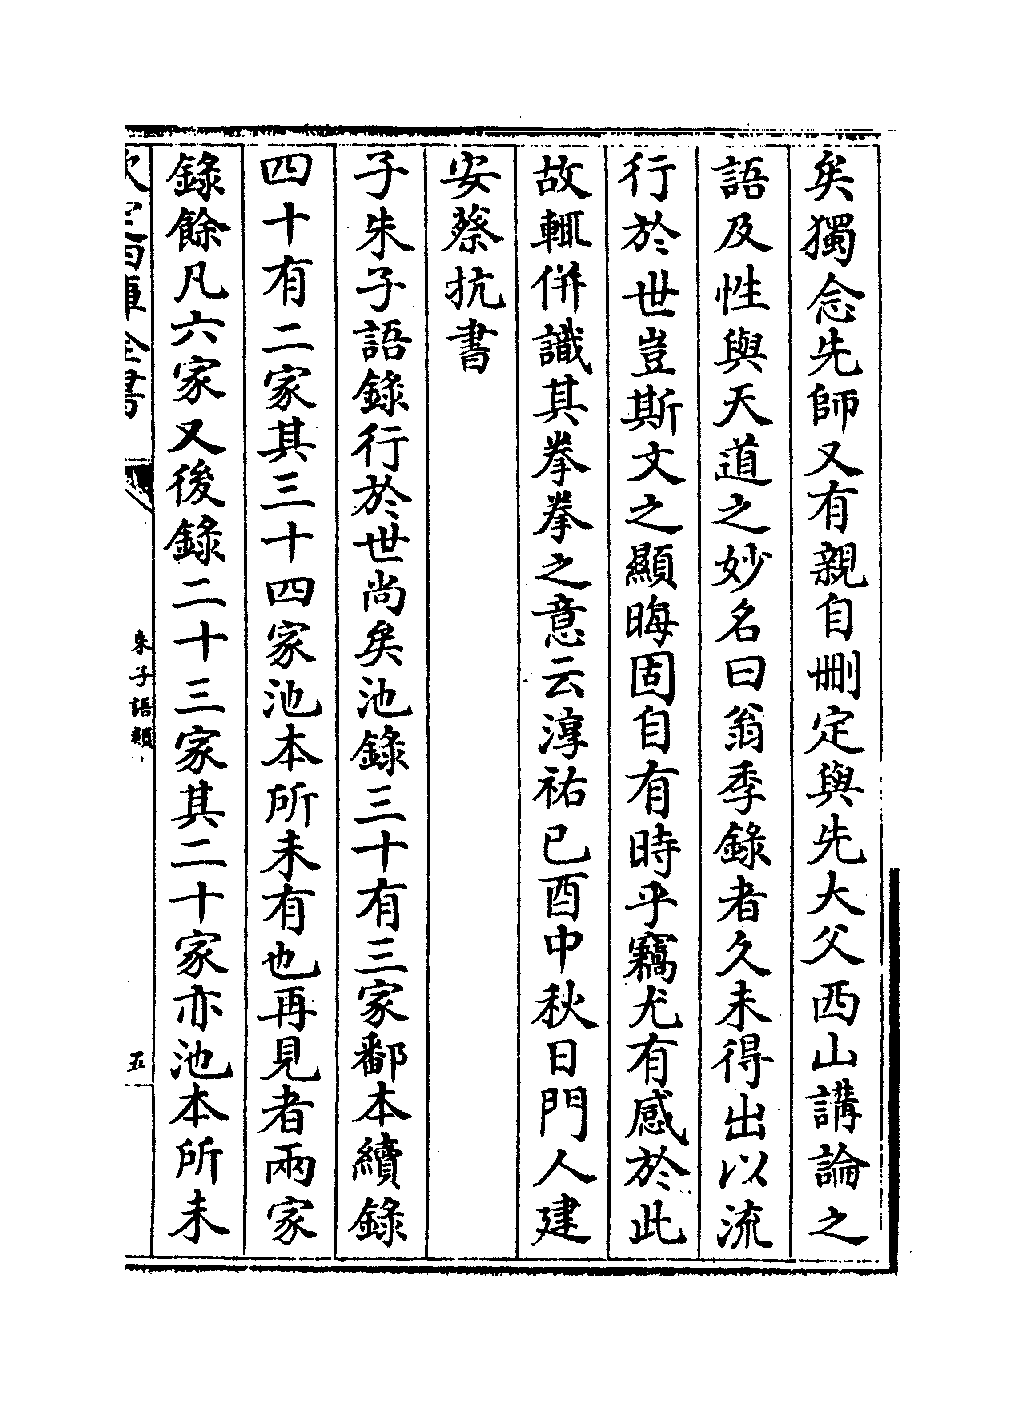 矣獨念先師又有親自刪定與先大父西山講論之
語及性與天道之妙名曰翁季錄者久未得出以流
行於世豈斯文之顯晦固自有時乎竊尤有感於此
故輒併識其拳拳之意云淳祐已酉中秋日門人建
安蔡抗書
子朱子語錄行於世尚矣池錄三十有三家鄱本續錄
四十有二家其三十四家池本所未有也再見者兩家
錄餘凡六家又後錄二十三家其二十家亦池本所未
欽定四庫全書
朱子語類
五